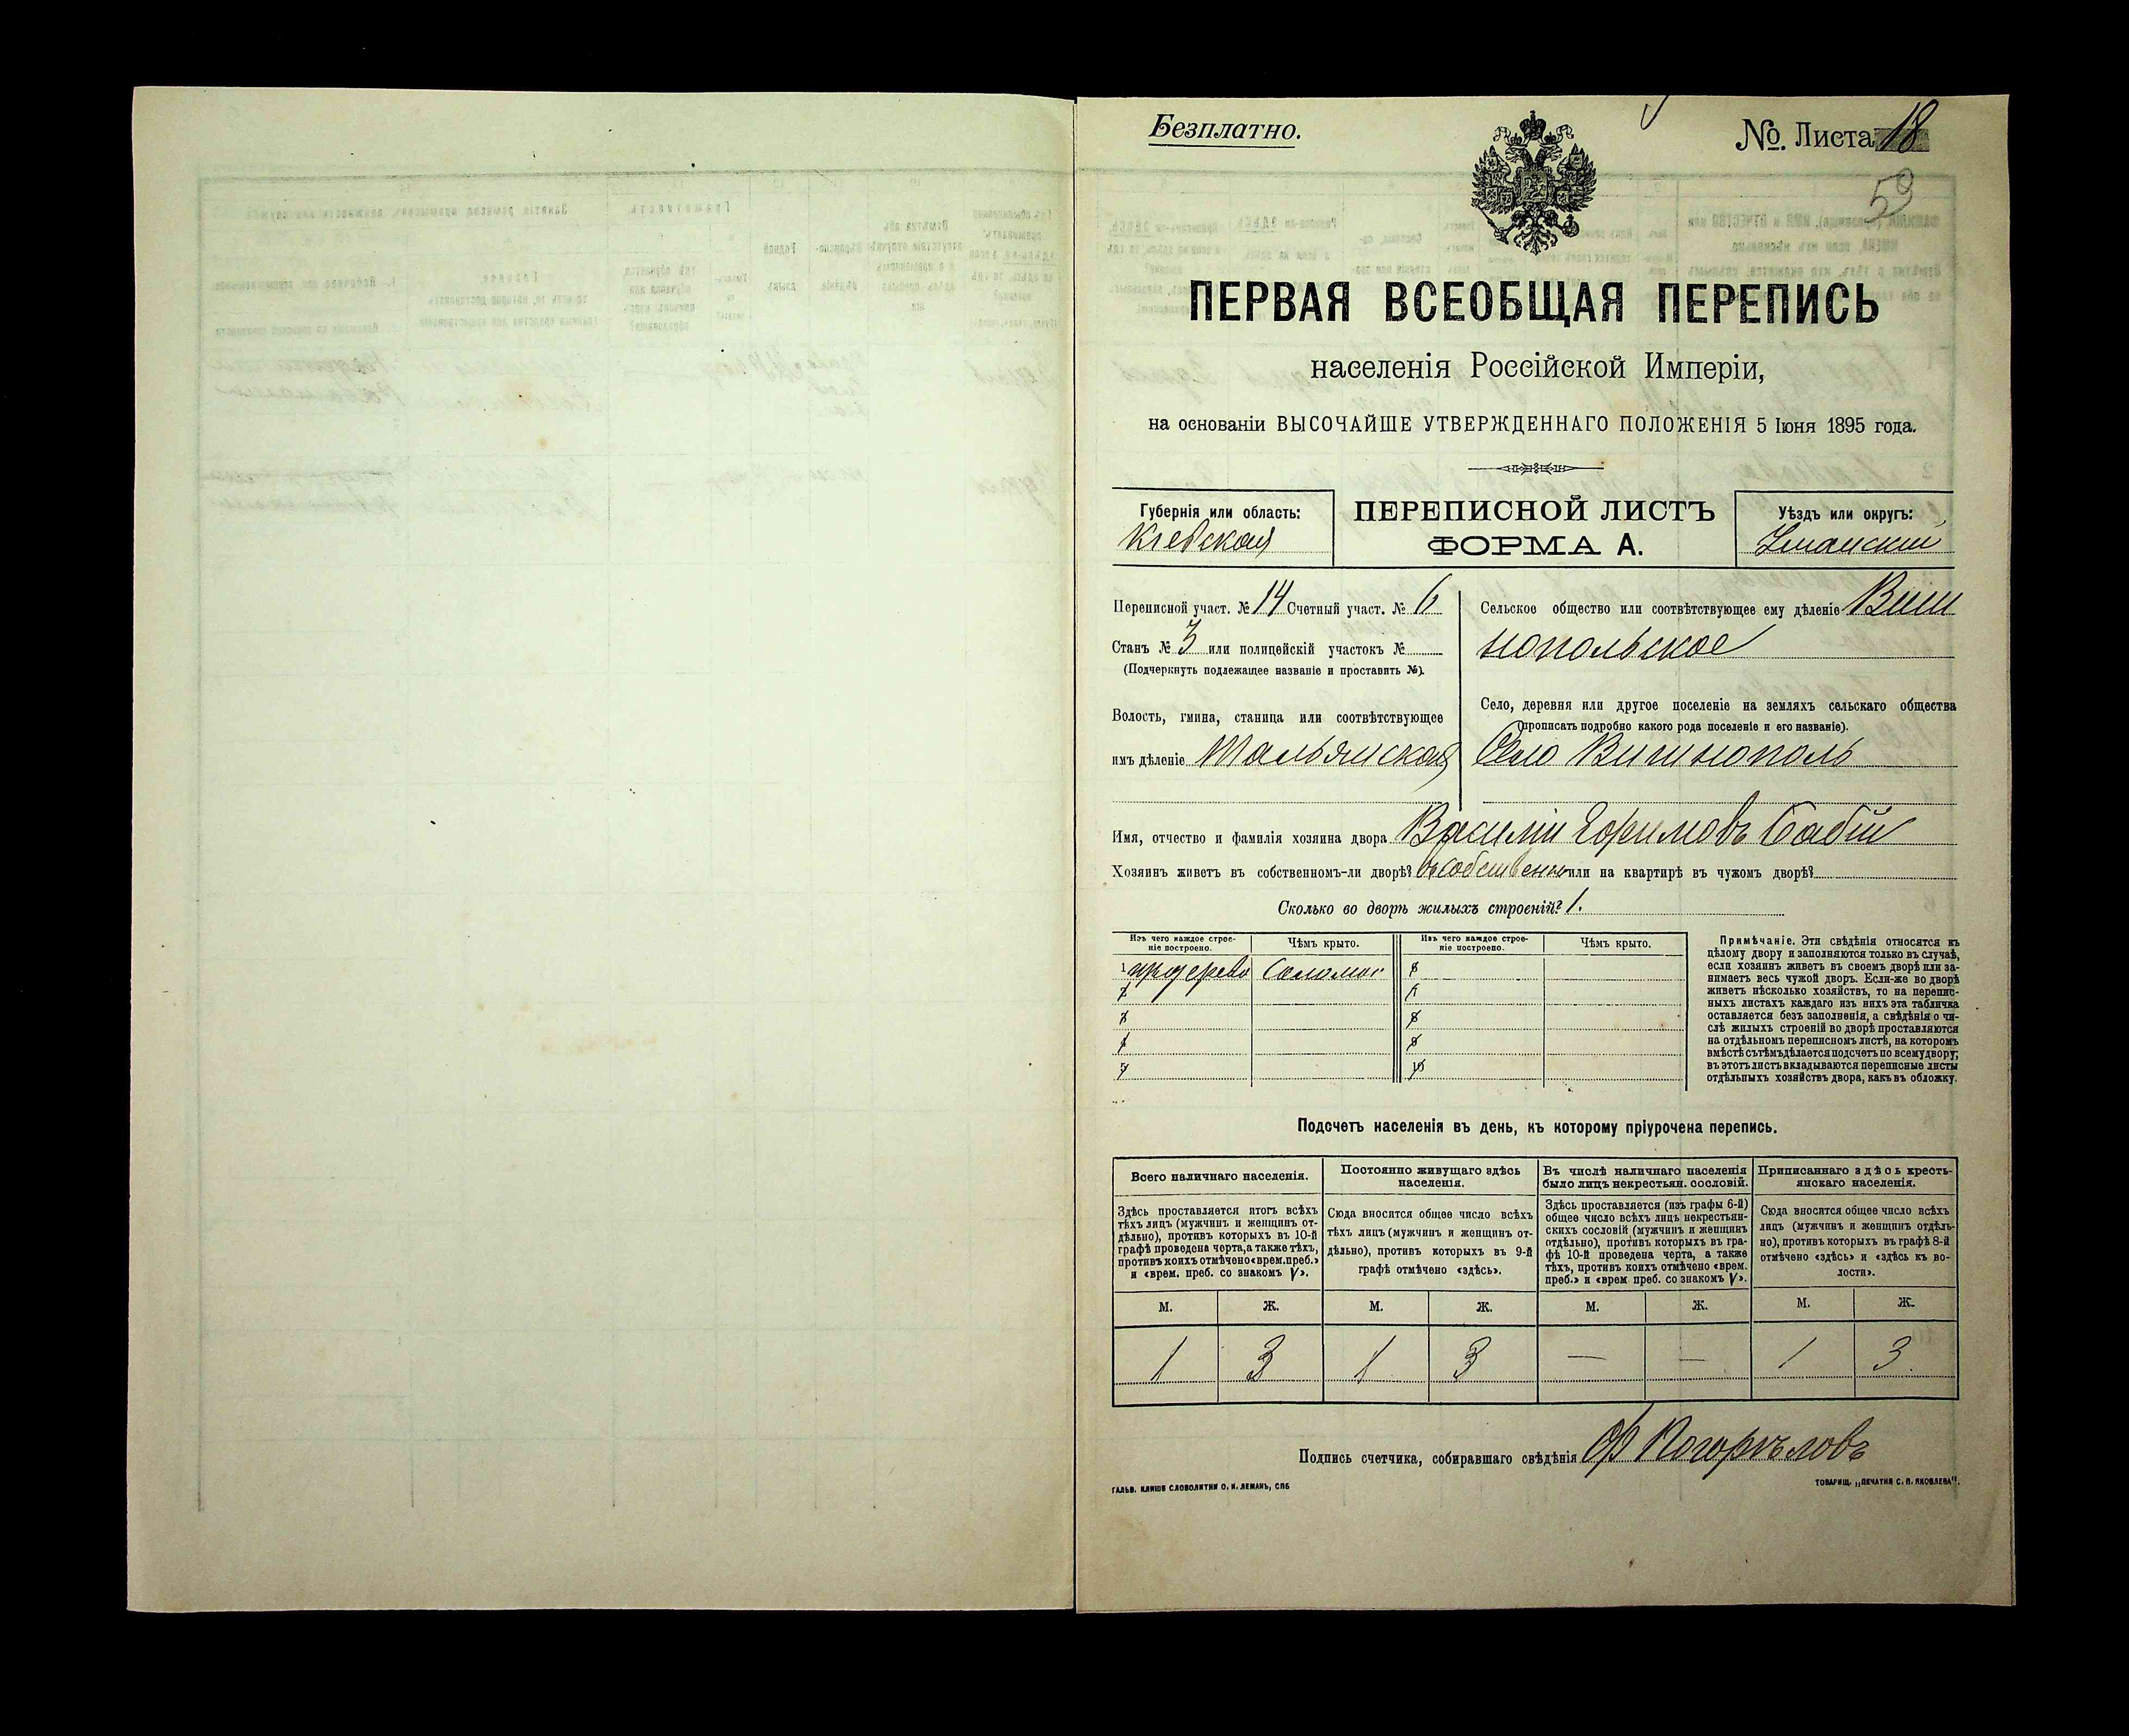 Безплатно.
№. Листа 18
59
ПЕРВАЯ ВСЕОБЩАЯ ПЕРЕПИСЬ
населенія Россійской Имперіи,
на основаніи ВЫСОЧАЙШЕ УТВЕРЖДЕННАГО ПОЛОЖЕНІЯ 5 Іюня 1895 года.
Губернія или область:
Кіевская
ПЕРЕПИСНОЙ ЛИСТЪ
ФОРМА А.
Уѣздъ или округъ:
Уманскій
Переписной участ. № 14 Счетный участ. № 6
Станъ № 3 или полицейскій участокъ №
(Подчеркнуть подлежащее названіе и проставить №).
Волость, гмина, станица или соотвѣтствующее
имъ дѣленіе Тальянская
Сельское общество или соотвѣтствующее ему дѣленіе Виш
нопольское
Село, деревня или другое поселеніе на земляхъ сельскаго общества
(прописать подробно какого рода поселеніе и его названіе).
Село Вишнополь
Имя, отчество и фамилія хозяина двора Василій Ефимовъ Бабій
Хозяинъ живетъ въ собственномъ-ли дворѣ? въ собственно или на квартирѣ въ чужомъ дворѣ?
Сколько во дворѣ жилыхъ строеній? 1.
Изъ чего каждое строе-
ніе построено.
Чѣмъ крыто.
Изъ чего каждое строе-
ніе построено.
Чѣмъ крыто.
1 Соломою 6
2 7
3 8
4 9
5 10
Примѣчаніе. Эти свѣдѣнія относятся къ
цѣлому двору и заполняются только въ случаѣ,
если хозяинъ живетъ въ своемъ дворѣ или за-
нимаетъ весь чужой дворъ. Если-же во дворѣ
живетъ нѣсколько хозяйствъ, то на перепис-
ныхъ листахъ каждаго изъ нихъ эта табличка
оставляется безъ заполненія, а свѣдѣнія о чи-
слѣ жилыхъ строеній во дворѣ проставляются
на отдѣльномъ переписномъ листѣ, на которомъ
вмѣстѣ съ тѣмъ дѣлается подсчетъ по всему двору;
въ этотъ листъ вкладываются переписные листы
отдѣльныхъ хозяйствъ двора, какъ въ обложку.
Подсчетъ населенія въ день, къ которому пріурочена перепись.
Всего наличнаго населенія.
Здѣсь проставляется итогъ всѣхъ
тѣхъ лицъ (мужчинъ и женщинъ от-
дѣльно), противъ которыхъ въ 10-й
графѣ проведена черта, а также тѣхъ,
противъ коихъ отмѣчено «врем. преб.»
и «врем. преб. со знакомъ V».
Постоянно живущаго здѣсь
населенія.
Сюда вносится общее число всѣхъ
тѣхъ лицъ (мужчинъ и женщинъ от-
дѣльно), противъ которыхъ въ 9-й
графѣ отмѣчено «здѣсь».
Въ числѣ наличнаго населенія
было лицъ некрестьян. сословій.
Здѣсь проставляется (изъ графы 6-й)
общее число всѣхъ лицъ некрестьян-
скихъ сословій (мужчинъ и женщинъ
отдѣльно), противъ которыхъ въ гра-
фѣ 10-й проведена черта, а также
тѣхъ, противъ коихъ отмѣчено «врем.
преб.» и «врем преб. со знакомъ V».
Приписаннаго здѣсь кресть-
янскаго населенія.
Сюда вносится общее число всѣхъ
лицъ (мужчинъ и женщинъ отдѣль-
но), противъ которыхъ въ графѣ 8-й
отмѣчено «здѣсь» и «здѣсь къ во-
лости».
М. Ж. М. Ж. М. Ж. М. Ж.
1 3 1 3 — — 1 3
Подпись счетчика, собиравшаго свѣдѣнія Ф Погорѣловъ
ГАЛЬВ. КЛИШЕ СЛОВОЛИТНИ О. И. ЛЕМАНЪ, СПБ
ТОВАРИЩ. „ПЕЧАТНЯ С. П. ЯКОВЛЕВА".